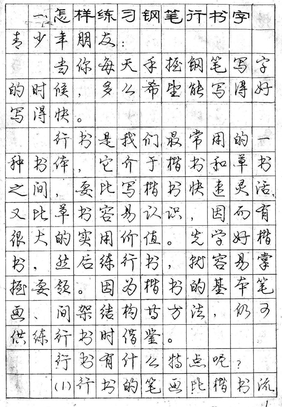 二、怎样练习钢笔行书字
青少年朋友：
当你每天手握钢笔写字
的时候，多么希望能写得好
写得快。
行书是我们最常用的一
种书体，它介于楷书和草书
之间，要比写楷书快速灵活，
又比草书容易认识，因而有
很大的实用价值。先学好楷
书，然后练行书，就容易掌
握要领。因为楷书的基本笔
画、间架结构等方法，仍可
供练行书时借鉴。
行书有什么特点呢？
(1)行书的笔画比楷书流